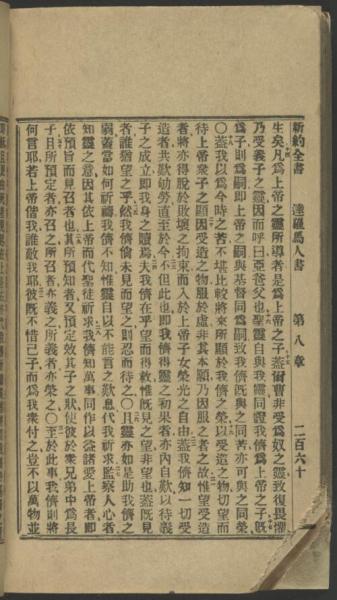 新約全書 達羅馬人書 第八章 二百六十
生矣凡爲上帝之靈所導者是爲上帝之子蓋爾曹非受爲奴之靈致復畏懼
乃受義子之靈因而呼曰亞爸父也聖靈自與我靈同證我儕爲上帝之子旣
爲子則爲嗣卽上帝之嗣與基督同爲嗣致我儕旣與之同苦亦可與之同榮
〇蓋我以爲今時之苦不堪比較將來所顯於我儕之榮以受造之物切望而
待上帝衆子之顯因受造之物服於虛非其本願乃因服之者之故惟望受造
者將亦得脫於敗壞之拘束而入於上帝子女榮光之自由蓋我儕知一切受
造者共歎劬勞直至於今不但此也卽我儕得靈之初果者亦內自歎以待義
子之成立卽我身之贖焉夫我儕在乎望而得救惟旣見之望非望也蓋旣見
者誰猶望之乎然我儕倘未見而望之則忍而待之〇且靈亦如是助我儕之
弱蓋當如何祈禱我儕不知惟靈自以不能言之歎息代我祈求監察人心者
知靈之意因其依上帝而代聖徒祈求我儕知萬事同作以益諸愛上帝者卽
依預旨而見召者也其所預知者又預定效其子之狀使彼於衆兄弟中爲長
子且所預定者亦召之所召者亦義之所義者亦榮之〇至於此事我儕則將
何言耶若上帝偕我誰敵我耶彼旣不惜己子而爲我衆付之豈不以萬物並